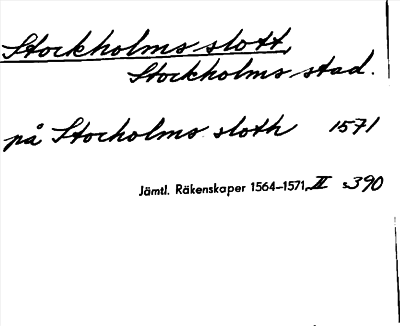 Stockholms slott,
Stockholms stad.
på Stocholms sloth 1571
Jämtl. Räkenskaper 1564–1571, II s 390